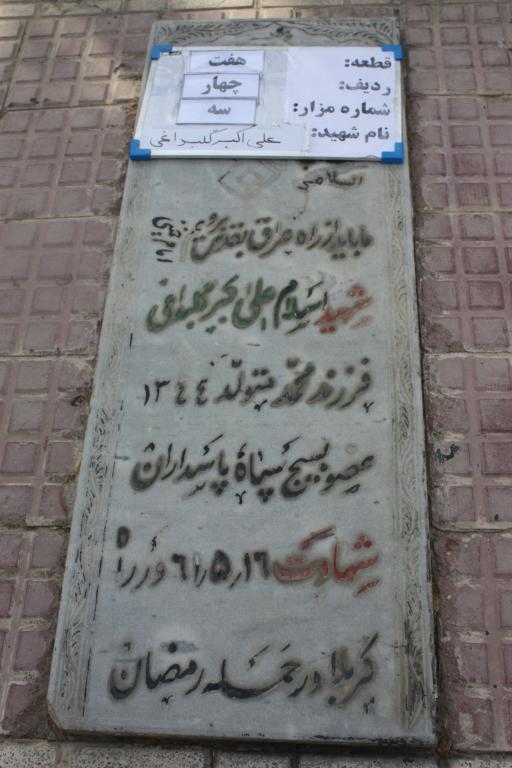 قطعه: هفت
ردیف: چهار
شماره مزار: سه
نام شهید: علی اکبر گلبداغی
اسلامی
ما باید از راه عراق بقدس برویم
شهید اسلام علی اکبر گلبداغی
فرزند محمد متولد ١٣٤٤
عضو بسیج سپاه پاسداران
شهادت ١٦ر٥ر٦١ در راه
کربلا در حمله رمضان